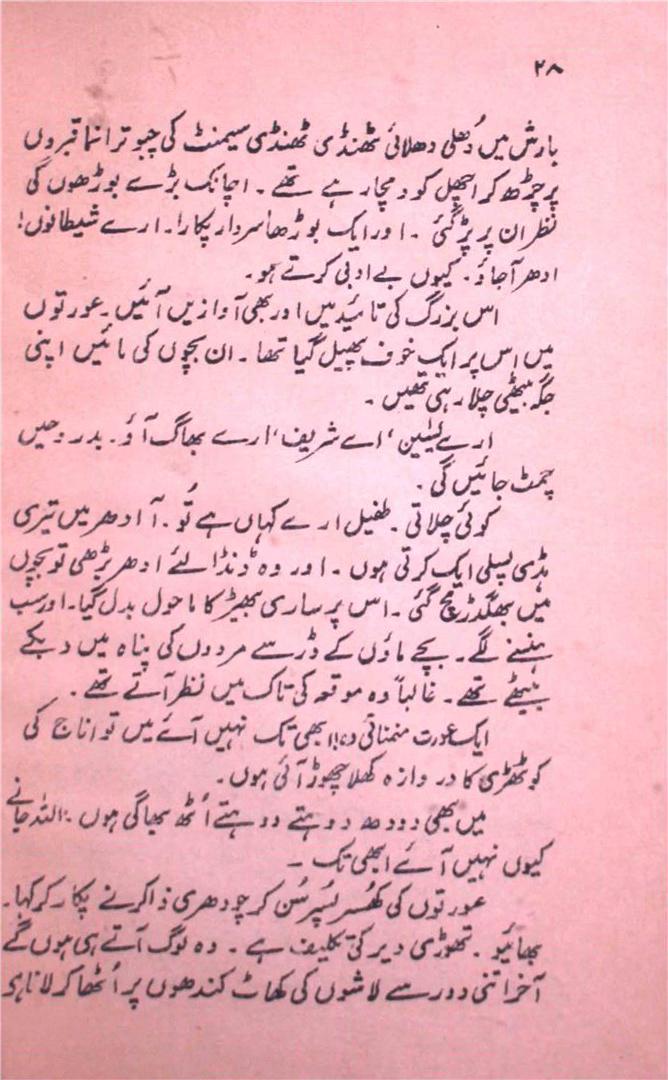 ۲۸
بارش میں دُھلی دھلائی ٹھنڈی ٹھنڈی سیمنٹ کی چبوترا نما قبروں
پر چڑھ کر اچھل کود مچا رہے تھے ۔ اچانک بڑے بوڑھوں کی
نظر ان پر پڑ گئی ۔ اور ایک بوڑھا سردار پکارا۔ ارے شیطانوں!
ادھر آجاؤ ۔ کیوں بے ادبی کرتے ہو ۔
اس بزرگ کی تائید میں اور بھی آوازیں آئیں ۔ عورتوں
میں اس پر ایک خوف پھیل گیا تھا ۔ ان بچوں کی مائیں اپنی
جگہ بیٹھی چلا رہی تھیں ۔
ارے یٰسین ‘ اے شریف ‘ ارے بھاگ آؤ ۔ بدروحیں
چمٹ جائیں گی ۔
کوئی چلاتی ۔ طفیل ارے کہاں ہے تُو ۔ آ ادھر میں تیری
ہڈی پسلی ایک کرتی ہوں ۔ اور وہ ڈنڈا لئے ادھر بڑھی تو بچوں
میں بھگدڑ مچ گئی ۔ اس پر ساری بھیڑ کا ماحول بدل گیا ۔ اور سب
ہنسنے لگے ۔ بچے ماؤں کے ڈر سے مردوں کی پناہ میں دبکے
بیٹھے تھے ۔ غالباً وہ موقعہ کی تاک میں نظر آتے تھے ۔
ایک عورت منمنائی وہ!! ابھی تک نہیں آئے میں تو اناج کی
کوٹھڑی کا دروازہ کھلا چھوڑ آئی ہوں ۔
میں بھی دودھ دوہتے دوہتے اُٹھ بھاگی ہوں ۔ اللہ جانے
کیوں نہیں آئے ابھی تک ۔
عورتوں کی کھُسر پُسر سُن کر چودھری ذاکر نے پکار کر کہا ۔
بھائیو ۔ تھوڑی دیر کی تکلیف ہے ۔ وہ لوگ آتے ہی ہوں گے
آخر اتنی دور سے لاشوں کی کھاٹ کندھوں پر اُٹھا کر لانا ہی